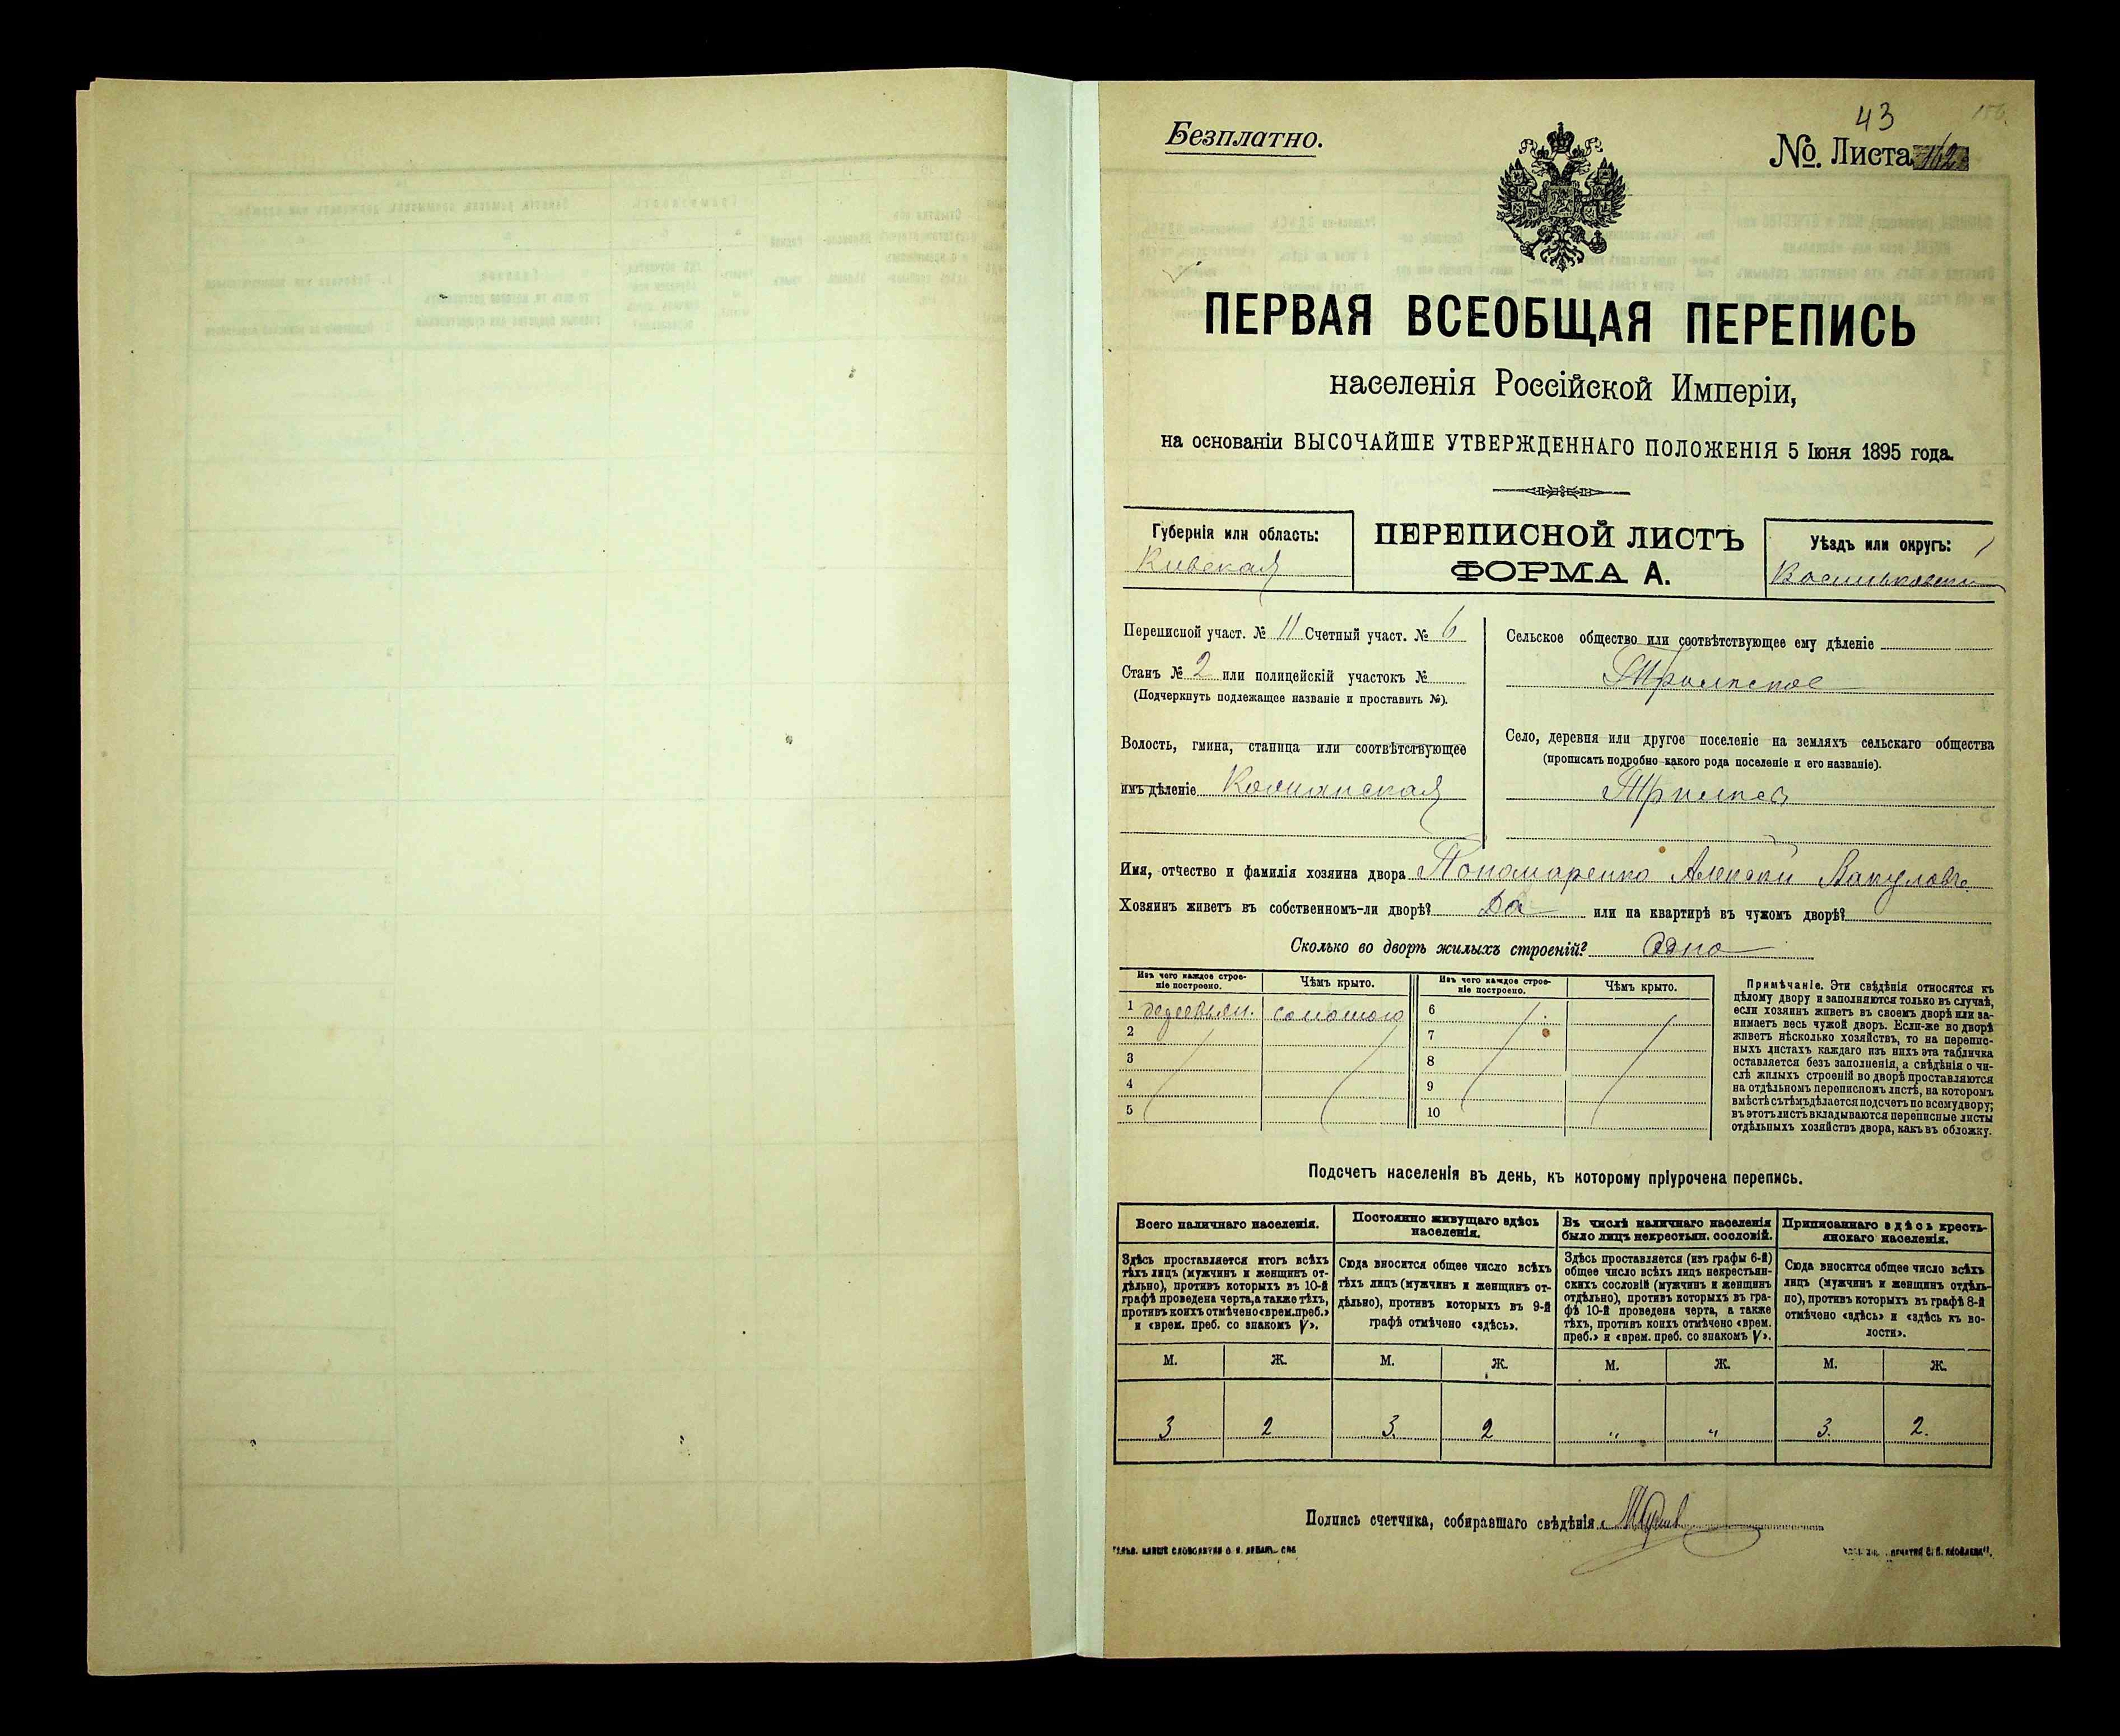 43
Безплатно.
№ Листа
ПЕРВАЯ ВСЕОБЩАЯ ПЕРЕПИСЬ
населенія Россійской Имперіи,
на основаніи ВЫСОЧАЙШЕ УТВЕРЖДЕННАГО ПОЛОЖЕНІЯ 5 Іюня 1895 года.
Губернія или область:
Кивская
ПЕРЕПИСНОЙ ЛИСТЪ
ФОРМА А.
Уѣздъ или округъ:
Переписной участ. № 11 Счетный участ. № 6
Станъ № 2 или полицейскій участокъ №
(Подчеркнуть подлежащее названіе и проставить №).
Волость, гмина, станица или соотвѣтствующее
имъ дѣленіе
Сельское общество или соотвѣтствующее ему дѣленіе
Трилпское
Село, деревня или другое поселеніе на земляхъ сельскаго общества
(прописать подробно какого рода поселеніе и его названіе).
Имя, отчество и фамилія хозяина двора Пономаренко Алексѣй Вакулов.
Хозяинъ живетъ въ собственномъ-ли дворѣ? Да или на квартирѣ въ чужомъ дворѣ?
Сколько во дворѣ жилыхъ строеній? Одно
Изъ чего каждое строе-
ніе построено.
Чѣмъ крыто.
Изъ чего каждое строе-
ніе построено.
Чѣмъ крыто.
1 деревян. соломою 6
2 7
3 8
4 9
5 10
Примѣчаніе. Эти свѣдѣнія относятся къ
цѣлому двору и заполняются только въ случаѣ,
если хозяинъ живетъ въ своемъ дворѣ или за-
нимаетъ весь чужой дворъ. Если-же во дворѣ
живетъ нѣсколько хозяйствъ, то на перепис-
ныхъ листахъ каждаго изъ нихъ эта табличка
оставляется безъ заполненія, а свѣдѣнія о чи-
слѣ жилыхъ строеній во дворѣ проставляются
на отдѣльномъ переписномъ листѣ, на которомъ
вмѣстѣ съ тѣмъ дѣлается подсчетъ по всему двору;
въ этотъ листъ вкладываются переписные листы
отдѣльныхъ хозяйствъ двора, какъ въ обложку.
Подсчетъ населенія въ день, къ которому пріурочена перепись.
Всего наличнаго населенія.
Здѣсь проставляется итогъ всѣхъ
тѣхъ лицъ (мужчинъ и женщинъ от-
дѣльно), противъ которыхъ въ 10-й
графѣ проведена черта, а также тѣхъ,
противъ коихъ отмѣчено «врем. преб.»
и «врем. преб. со знакомъ V».
Постоянно живущаго здѣсь
населенія.
Сюда вносится общее число всѣхъ
тѣхъ лицъ (мужчинъ и женщинъ от-
дѣльно), противъ которыхъ въ 9-й
графѣ отмѣчено «здѣсь».
Въ числѣ наличнаго населенія
было лицъ некрестьян. сословій.
Здѣсь проставляется (изъ графы 6-й)
общее число всѣхъ лицъ некрестьян-
скихъ сословій (мужчинъ и женщинъ
отдѣльно), противъ которыхъ въ гра-
фѣ 10-й проведена черта, а также
тѣхъ, противъ коихъ отмѣчено «врем.
преб.» и «врем. преб. со знакомъ V».
Приписаннаго здѣсь кресть-
янскаго населенія.
Сюда вносится общее число всѣхъ
лицъ (мужчинъ и женщинъ отдѣль-
но), противъ которыхъ въ графѣ 8-й
отмѣчено «здѣсь» и «здѣсь къ во-
лости».
М. Ж. М. Ж. М. Ж. М. Ж.
3 2 3. 2 " " 3. 2.
Подпись счетчика, собиравшаго свѣдѣнія